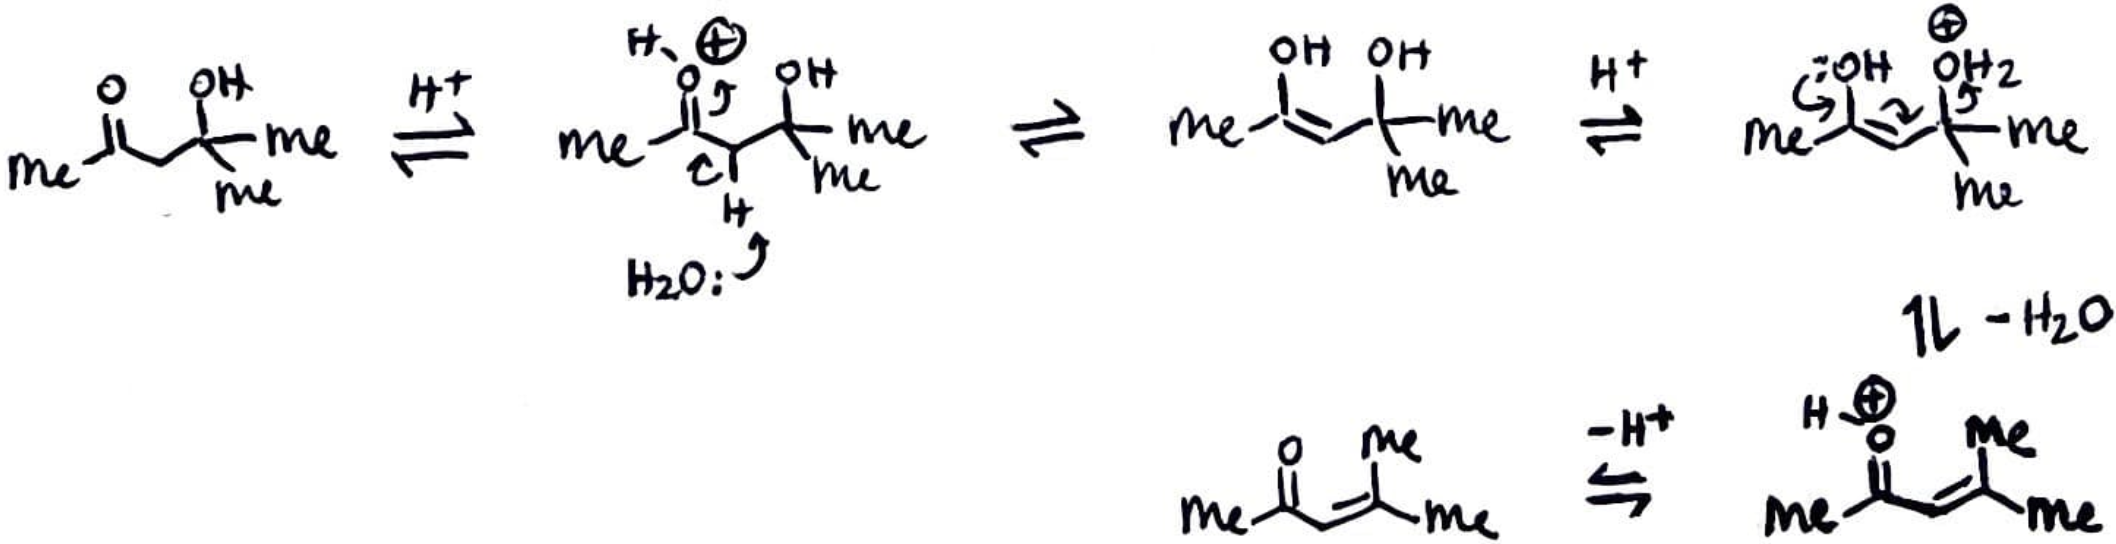 O OH Me Me Me
H+
H ⊕ O OH Me Me Me H H2O:
OH OH Me Me Me
H+
:OH ⊕ OH2 Me Me Me
-H2O
H ⊕ O Me Me Me
-H+
O Me Me Me